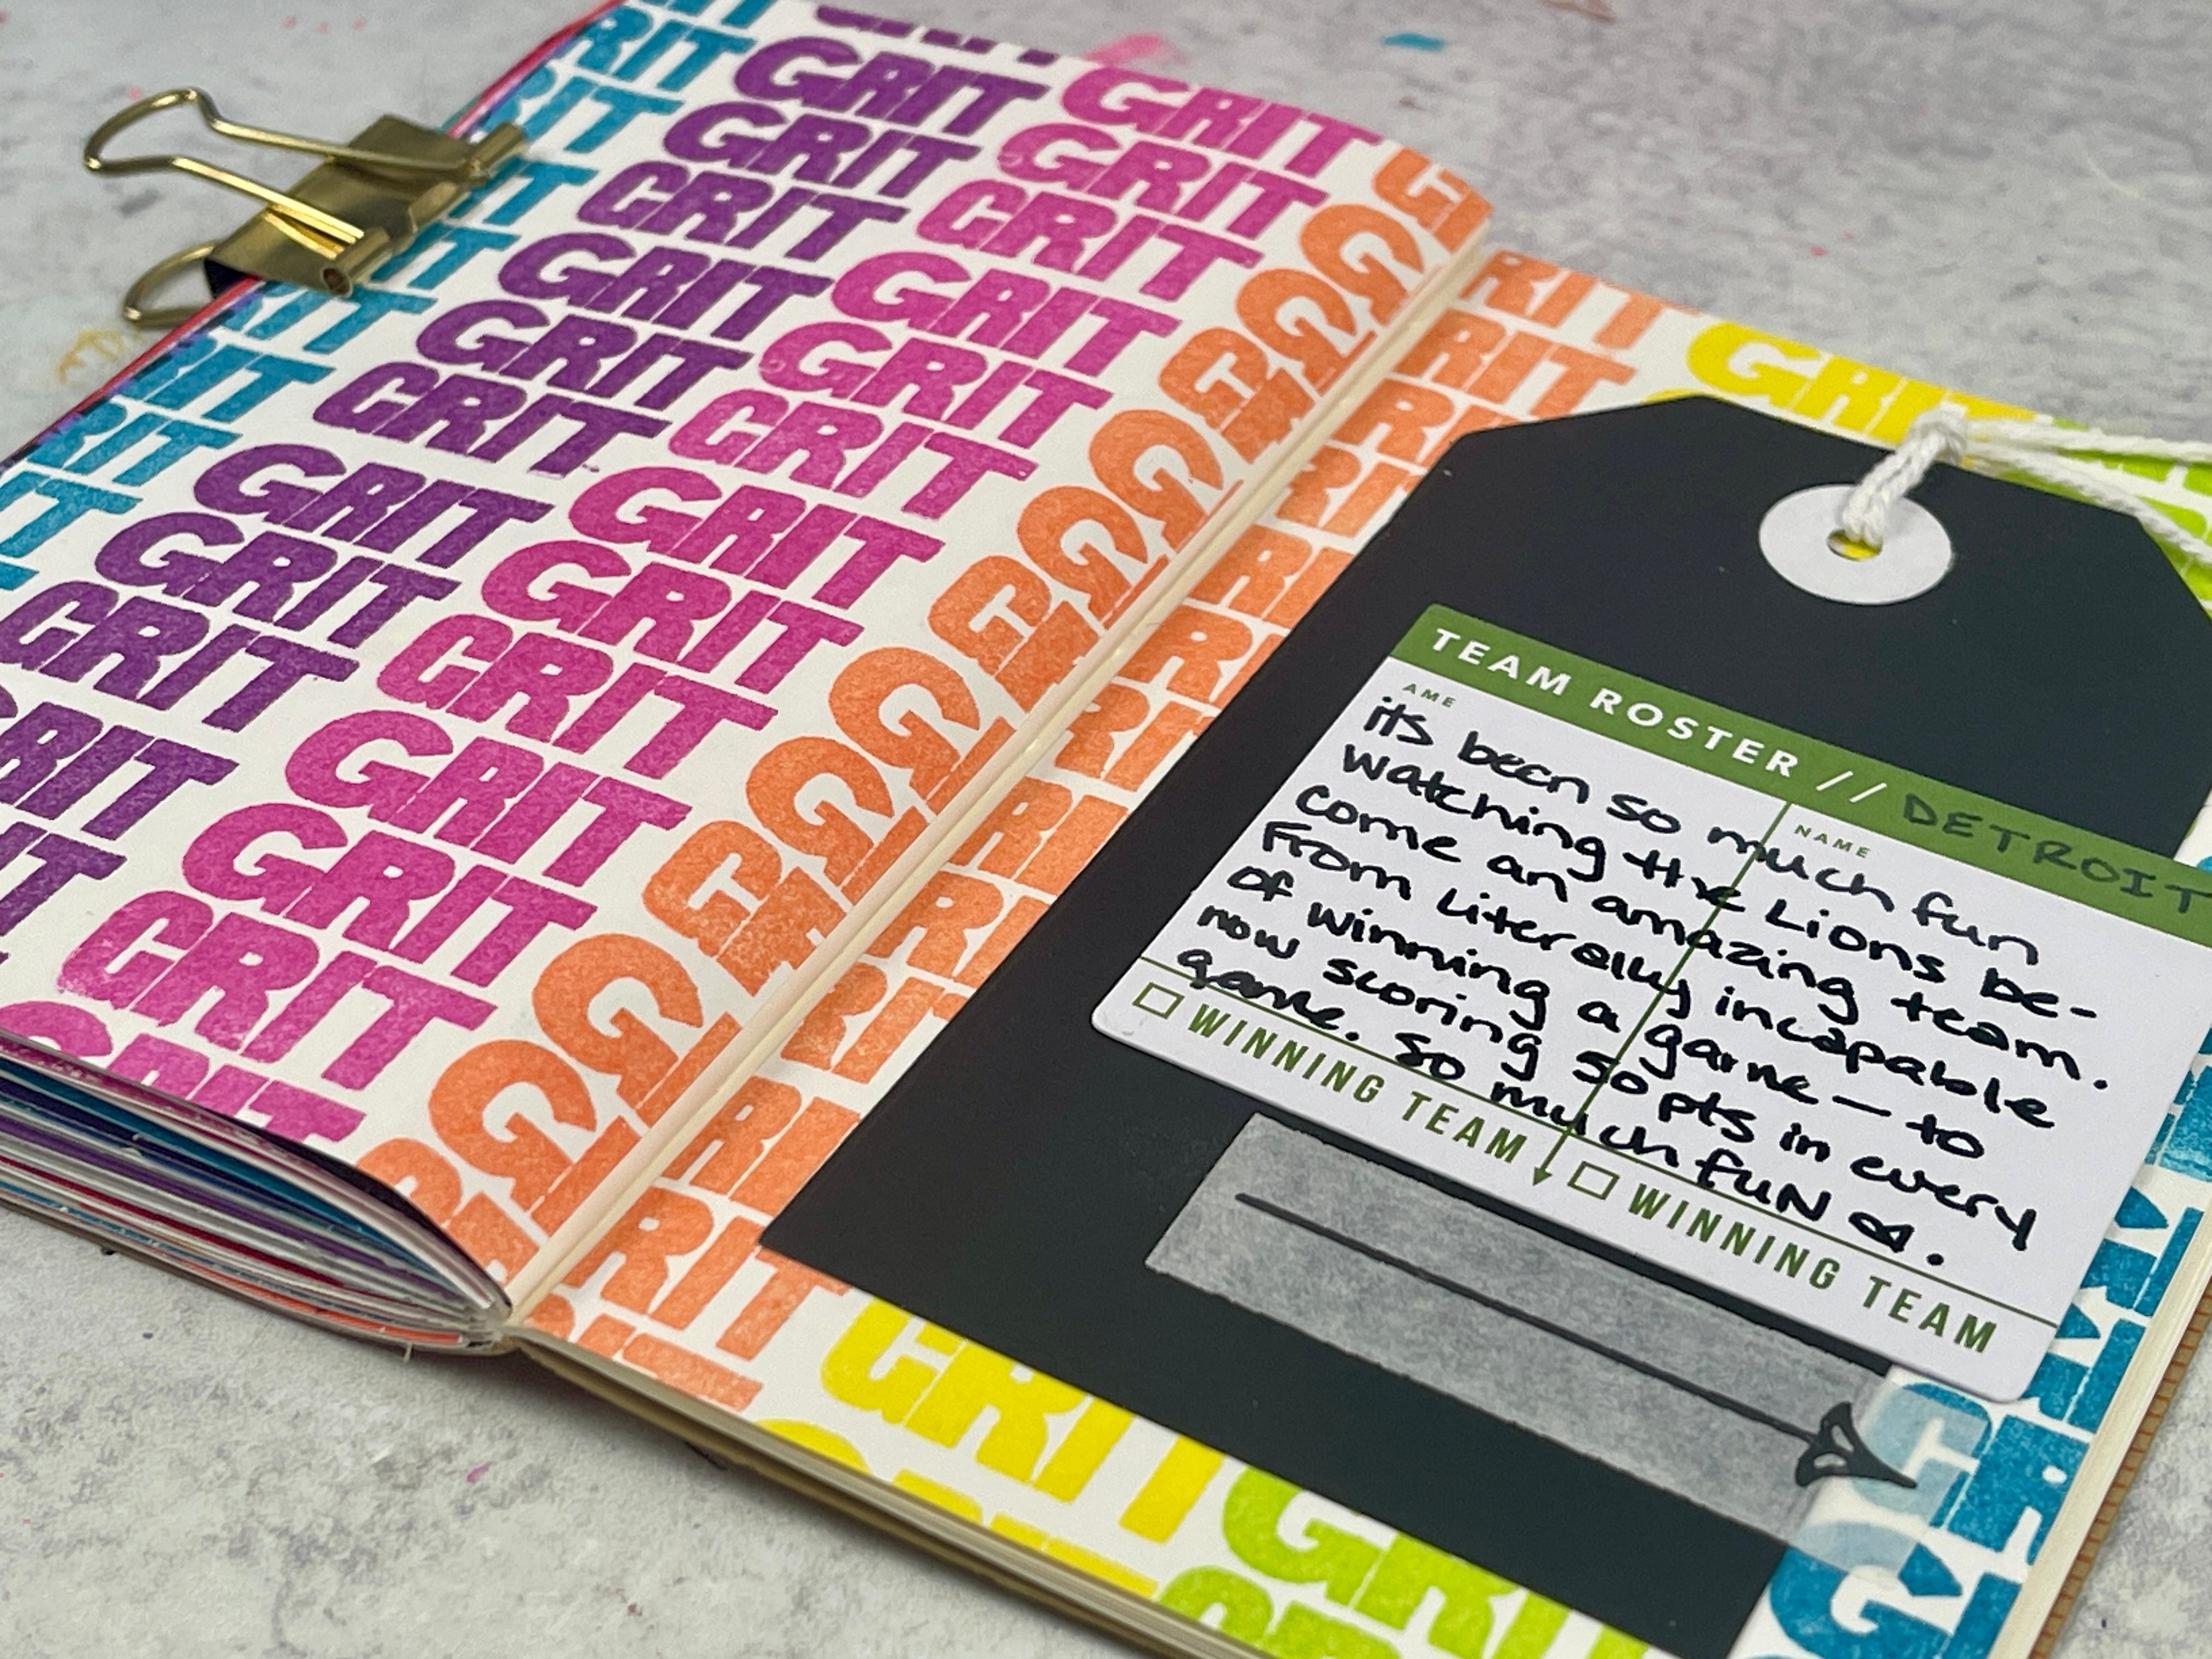 GRIT GRIT
GRIT GRIT
GRIT GRIT
GRIT GRIT
GRIT GRIT
GRIT GRIT
GRIT GRIT
GRIT GRIT
GRIT GRIT
GRIT GRIT
GRIT
GRIT
GRIT
GRIT
TEAM ROSTER // DETROIT
AME
NAME
its been so much fun
watching the Lions be-
come an amazing team.
From literally incapable
of winning a game — to
now scoring 50 pts in every
game. So much fun
WINNING TEAM
WINNING TEAM
GRIT
GRIT